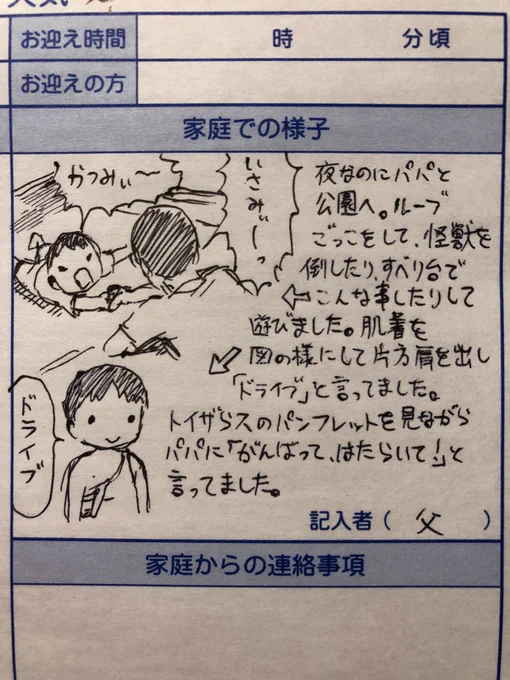 お迎え時間 時 分頃
お迎えの方
家庭での様子
かつみぃ〜
いさみぃーっ
夜なのにパパと
公園へ。ループ
ごっこをして、怪獣を
倒したり、すべり台で
⇦こんな事したりして
遊びました。肌着を
図の様にして片方肩を出し
「ドライブ」と言ってました。
トイザらスのパンフレットを見ながら
パパに「がんばって、はたらいて!」と
言ってました。
ドライブ
記入者(父)
家庭からの連絡事項